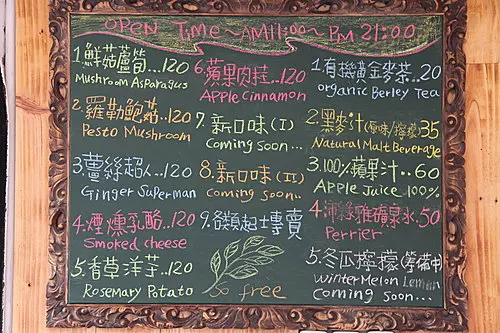 OPEN Time~AM11:00~PM 21:00
1.鮮菇蘆筍...120
Mushroom Asparagus
2.羅勒鮑菇...120
Pesto Mushroom
3.薑絲超人...120
Ginger Superman
4.煙燻乳酪.120
Smoked cheese
5.香草洋芋..120
Rosemary Potato
6.蘋果肉桂...120
Apple Cinnamon
7.新口味(I)
Coming soon...
8.新口味(II)
Coming soon..
9.各類起士專賣
So free
1.有機黃金麥茶..20
organic Berley Tea
2.黑麥汁(原味/檸檬)35
Natural Malt Beverage
3.100%蘋果汁..60
Apple Juice 100%
4.沛綠雅礦泉水.50
Perrier
5.冬瓜檸檬(籌備中)
Winter Melon Lemon
Coming soon...